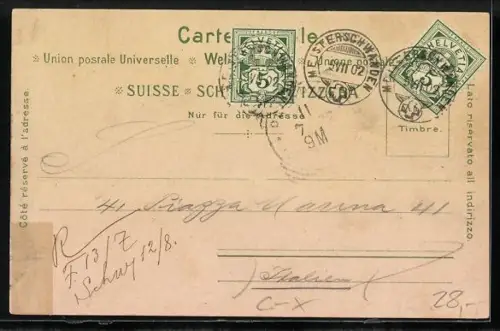 Carte
Union postale Universelle
SUISSE
Nur für die Adresse
Côté réservé à l'adresse.
Lato riservato all indirizzo.
Timbre.
HELVETIA
5
MEISTERSCHWANDEN
VII 02
HELVETIA
5
11
7
9M
41 Piazza Marina 41
Italien
C-X
R
F 13/7
Schwy 12/8.
28,-